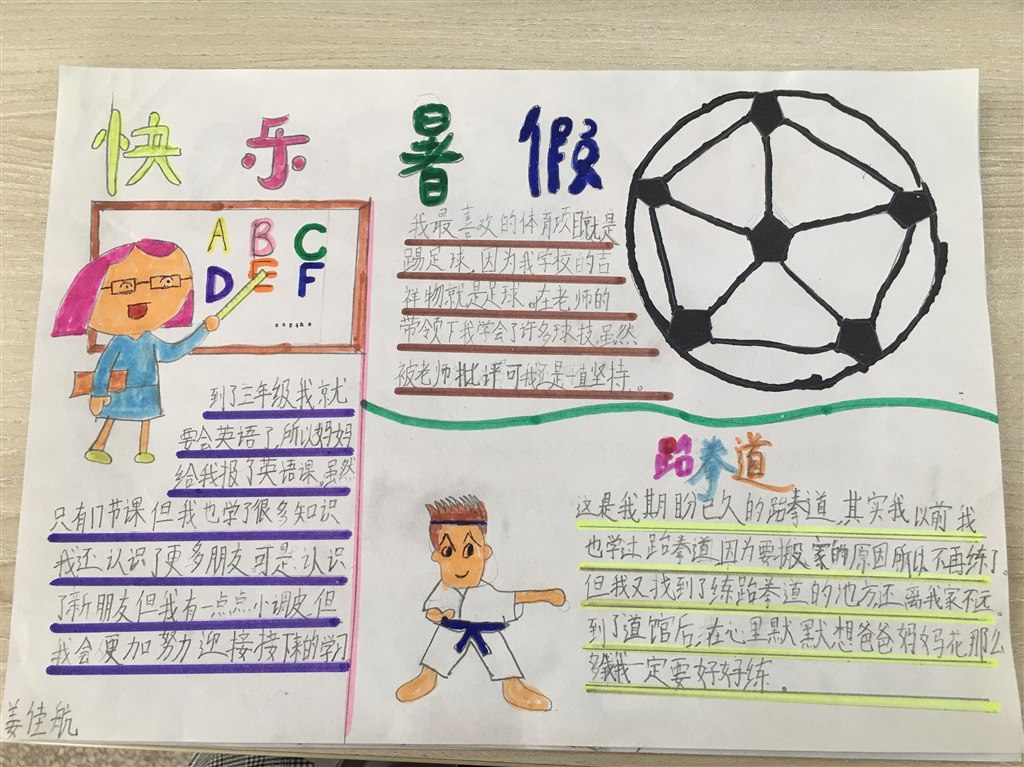 快乐暑假
A B C
D E F
......
到了三年级我就
要会英语了,所以妈妈
给我报了英语课。虽然
只有17节课但我也学了很多知识
我还认识了更多朋友可是认识
了新朋友但我有一点点小调皮,但
我会更加努力迎接接下来的学习
我最喜欢的体育项目就是
踢足球,因为我学校的吉
祥物就是足球。在老师的
带领下我学会了许多球技,虽然
被老师批评可我还是一直坚持。
跆拳道
这是我期盼已久的跆拳道,其实我以前我
也学过跆拳道,因为要搬家的原因所以不再练了
但我又找到了练跆拳道的地方还离我家不远。
到了道馆后,在心里默默想爸爸妈妈花那么
多钱我一定要好好练。
姜佳航